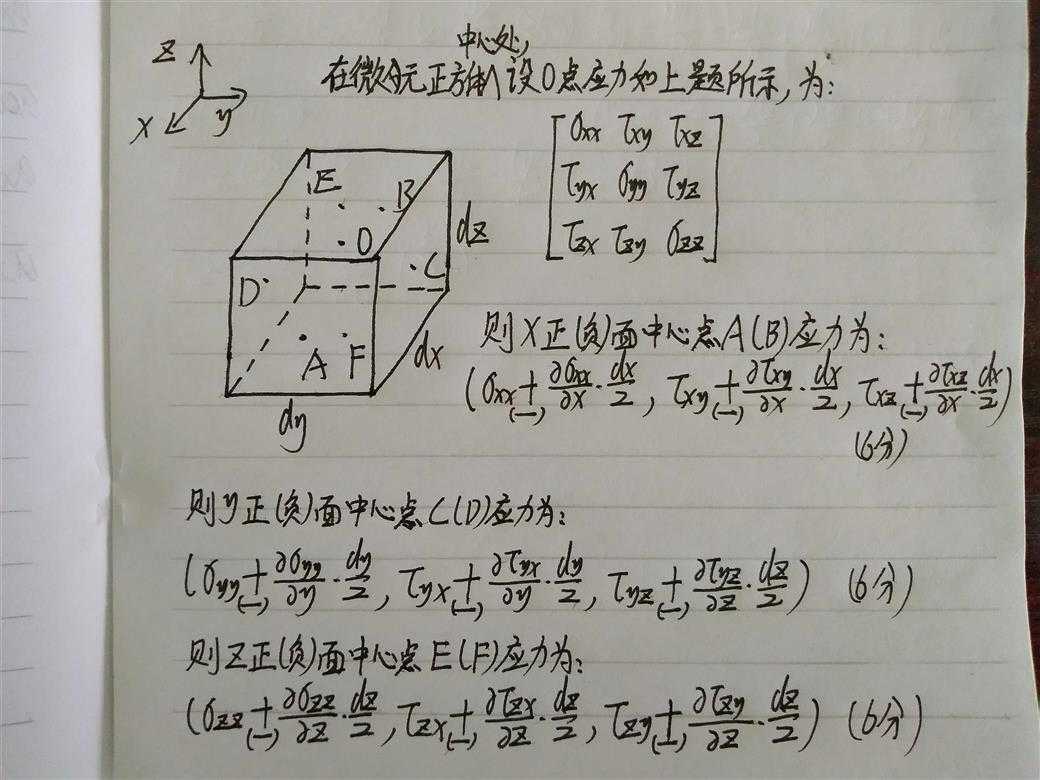 中心处,
在微分元正方体∧设O点应力如上题所示,为:
z
x
y
[σxx τxy τxz
τyx σyy τyz
τzx τzy σzz]
E
B
O
dz
D
C
A
F
dx
dy
则X正(负)面中心点A(B)应力为:
(σxx +(−) ∂σxx/∂x · dx/2, τxy +(−) ∂τxy/∂x · dx/2, τxz +(−) ∂τxz/∂x · dx/2)
(6分)
则y正(负)面中心点C(D)应力为:
(σyy +(−) ∂σyy/∂y · dy/2, τyx +(−) ∂τyx/∂y · dy/2, τyz +(−) ∂τyz/∂z · dz/2) (6分)
则Z正(负)面中心点E(F)应力为:
(σzz +(−) ∂σzz/∂z · dz/2, τzx +(−) ∂τzx/∂z · dz/2, τzy +(−) ∂τzy/∂z · dz/2) (6分)